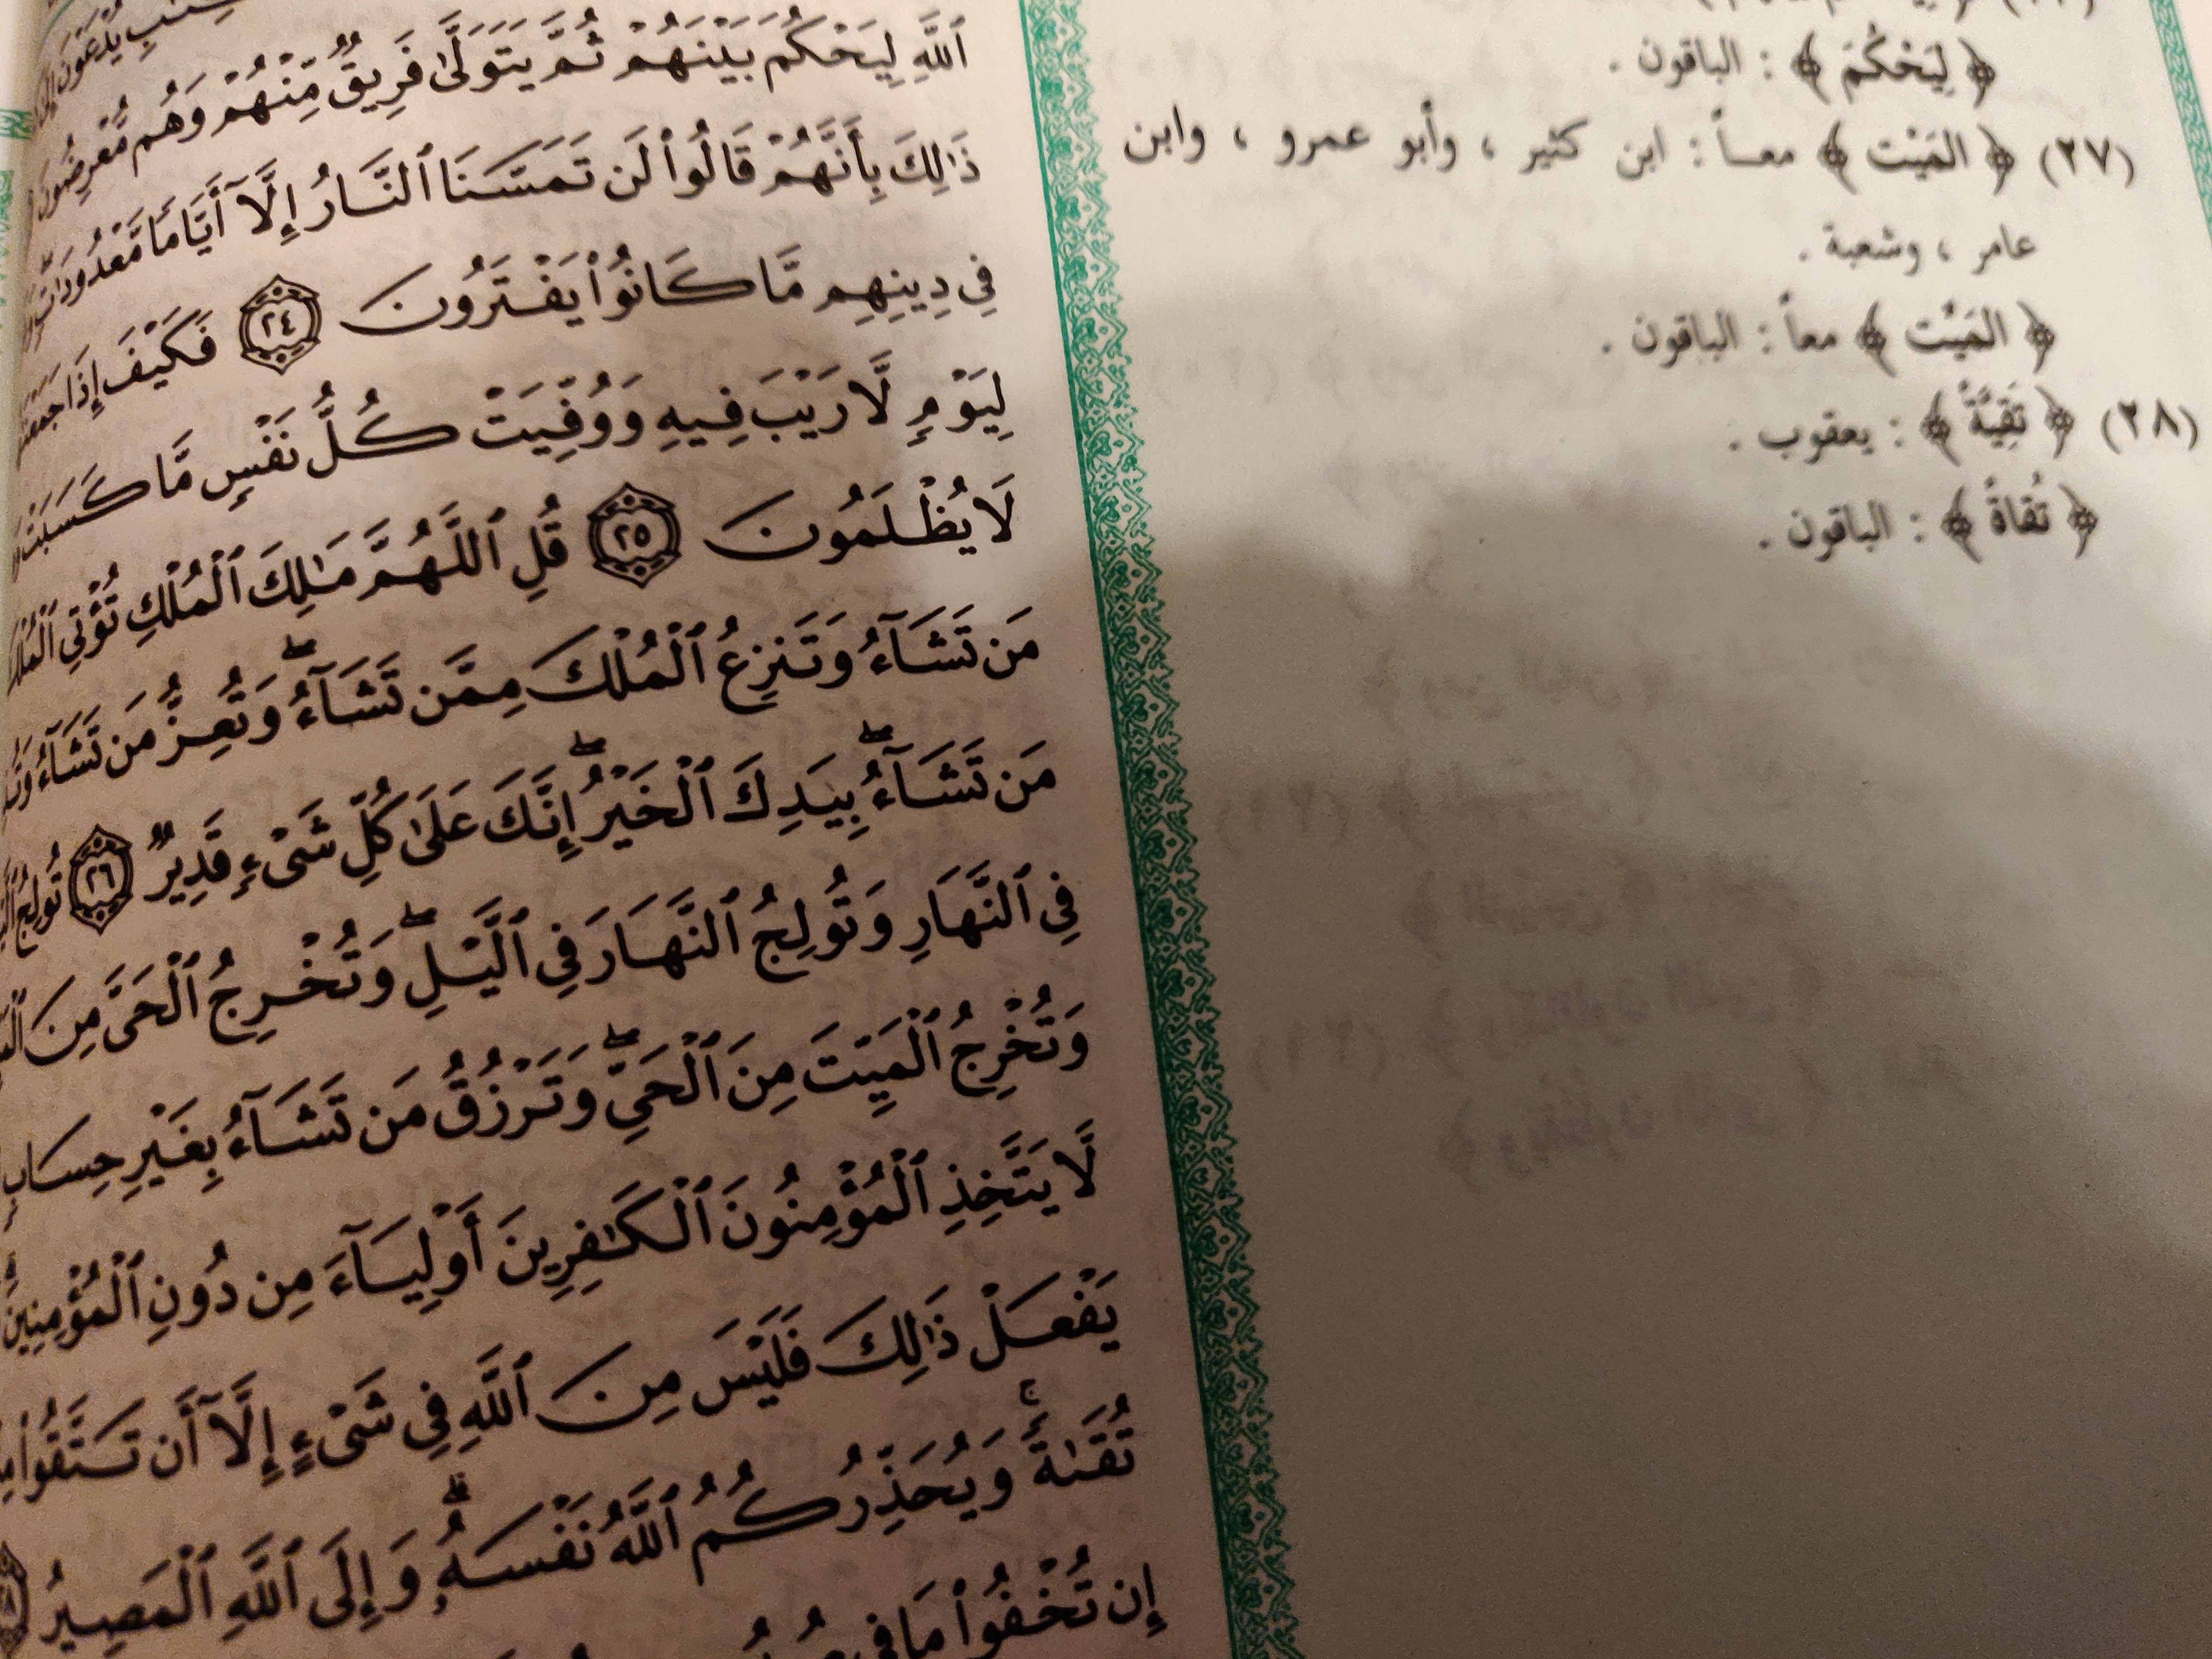 ٱللَّهِ لِيَحْكُمَ بَيْنَهُمْ ثُمَّ يَتَوَلَّىٰ فَرِيقٌ مِّنْهُمْ وَهُم مُّعْرِضُونَ
ذَٰلِكَ بِأَنَّهُمْ قَالُوا۟ لَن تَمَسَّنَا ٱلنَّارُ إِلَّآ أَيَّامًا مَّعْدُودَاتٍ
فِى دِينِهِم مَّا كَانُوا۟ يَفْتَرُونَ ٢٤ فَكَيْفَ إِذَا جَمَعْنَ
لِيَوْمٍ لَّا رَيْبَ فِيهِ وَوُفِّيَتْ كُلُّ نَفْسٍ مَّا كَسَبَتْ
لَا يُظْلَمُونَ ٢٥ قُلِ ٱللَّهُمَّ مَـٰلِكَ ٱلْمُلْكِ تُؤْتِى ٱلْمُلْكَ
مَن تَشَآءُ وَتَنزِعُ ٱلْمُلْكَ مِمَّن تَشَآءُ ۖ وَتُعِزُّ مَن تَشَآءُ
مَن تَشَآءُ ۖ بِيَدِكَ ٱلْخَيْرُ ۖ إِنَّكَ عَلَىٰ كُلِّ شَىْءٍ قَدِيرٌ ٢٦ تُولِجُ
فِى ٱلنَّهَارِ وَتُولِجُ ٱلنَّهَارَ فِى ٱلَّيْلِ ۖ وَتُخْرِجُ ٱلْحَىَّ مِنَ
وَتُخْرِجُ ٱلْمَيِّتَ مِنَ ٱلْحَىِّ ۖ وَتَرْزُقُ مَن تَشَآءُ بِغَيْرِ حِسَابٍ
لَّا يَتَّخِذِ ٱلْمُؤْمِنُونَ ٱلْكَـٰفِرِينَ أَوْلِيَآءَ مِن دُونِ ٱلْمُؤْمِنِينَ
يَفْعَلْ ذَٰلِكَ فَلَيْسَ مِنَ ٱللَّهِ فِى شَىْءٍ إِلَّآ أَن تَتَّقُوا۟
تُقَىٰةً ۚ وَيُحَذِّرُكُمُ ٱللَّهُ نَفْسَهُۥ ۗ وَإِلَى ٱللَّهِ ٱلْمَصِيرُ
إِن تُخْفُوا۟ مَا فِى
﴿ لِيَحْكُمَ ﴾ : الباقون .
(٢٧) ﴿ المَيْت ﴾ معاً : ابن كثير ، وأبو عمرو ، وابن
عامر ، وشعبة .
﴿ المَيِّت ﴾ معاً : الباقون .
(٢٨) ﴿ تَقِيَّةً ﴾ : يعقوب .
﴿ تُقاةً ﴾ : الباقون .